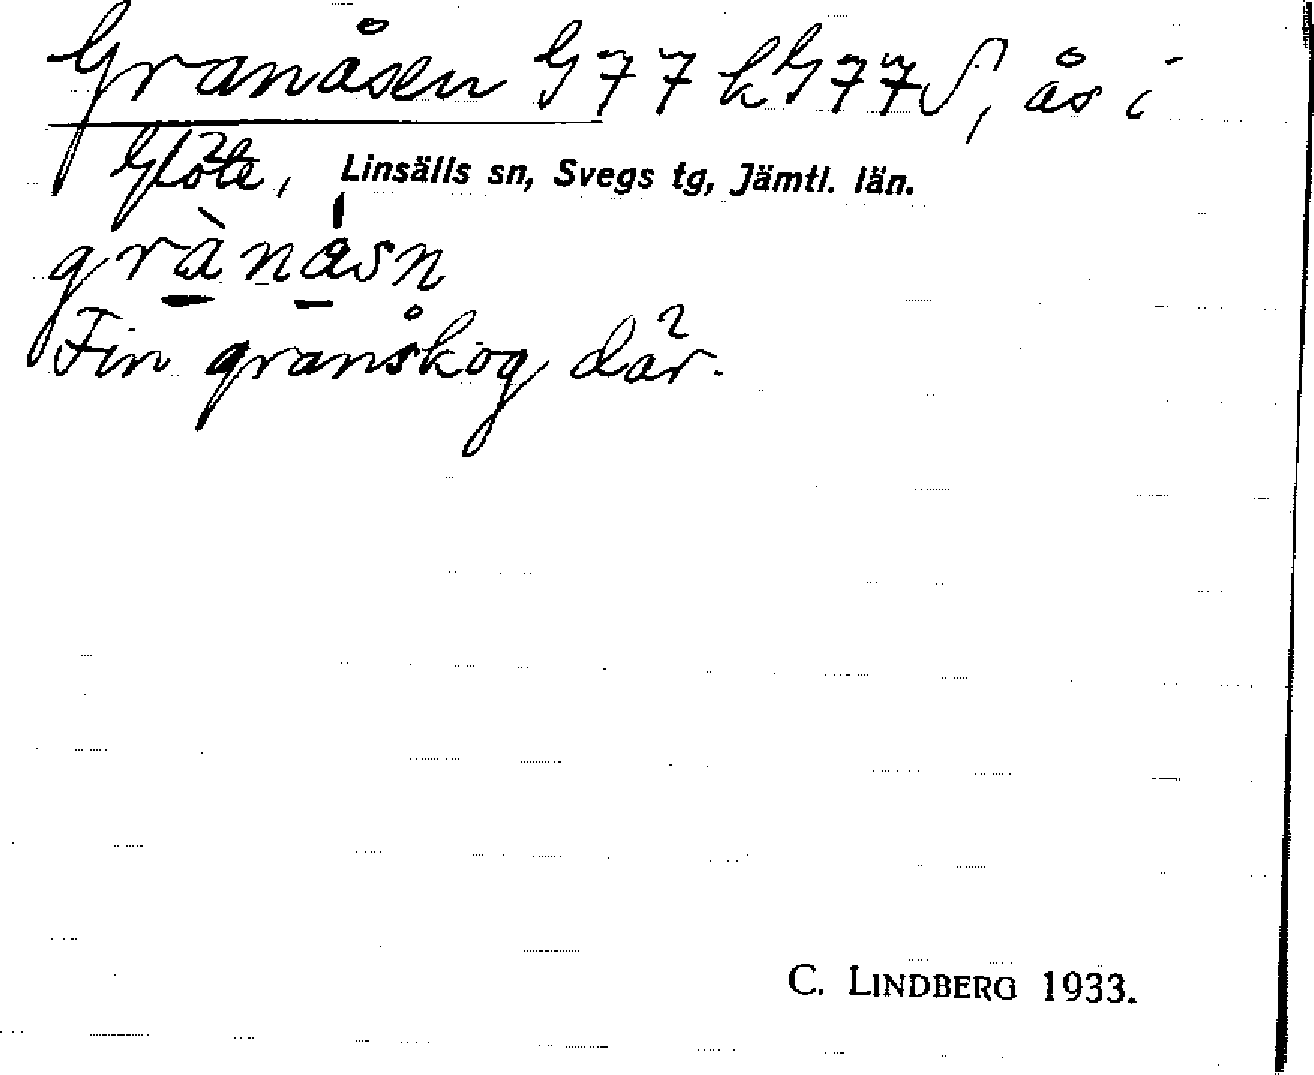 Granåsen G77 kG77S, ås i
Glöte, Linsälls sn, Svegs tg, Jämtl. län.
grànåsn
Fin granskog där.
C. LINDBERG 1933.